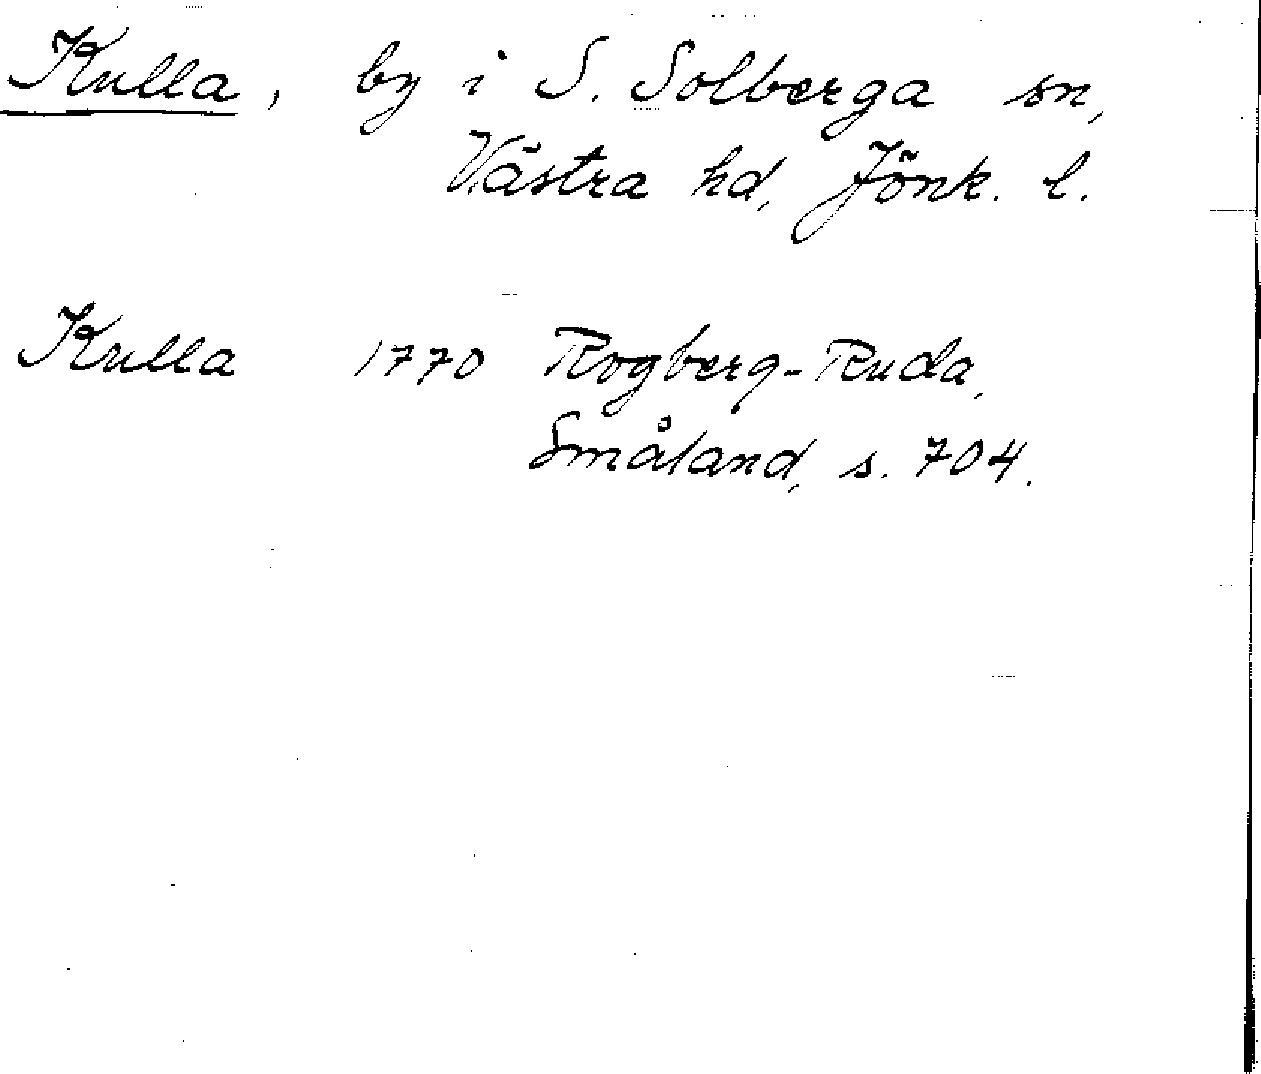 Kulla, by i S. Solberga sn,
Västra hd, Jönk. l.
Kulla 1770 Rogberg-Ruda,
Småland, s. 704.